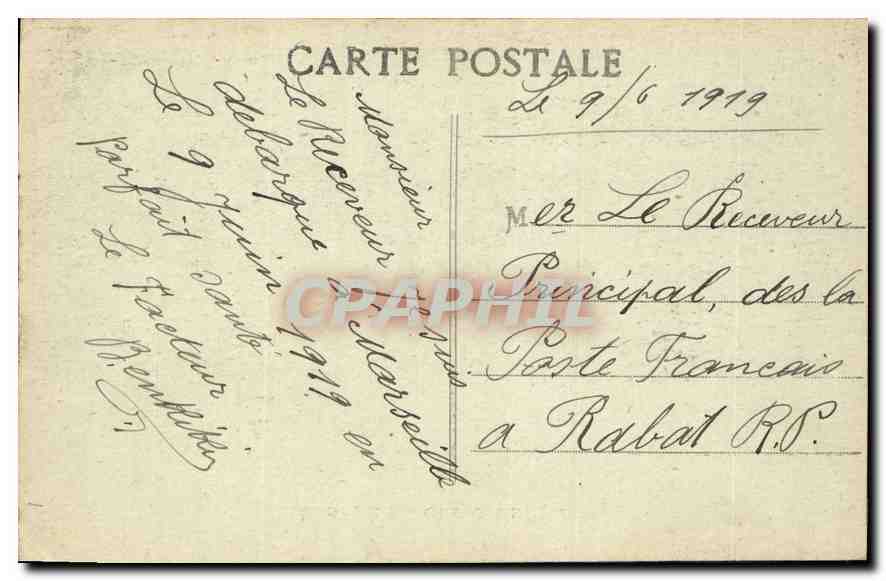 CARTE POSTALE
Le 9/6 1919
Monsieur
Le Receveur Je suis
debarque a Marseille
Le 9 Juin 1919 en
parfait santé
Le Facteur
Mer Le Receveur
Principal, des la
Poste Francais
a Rabat R.P.
CPAPHIL